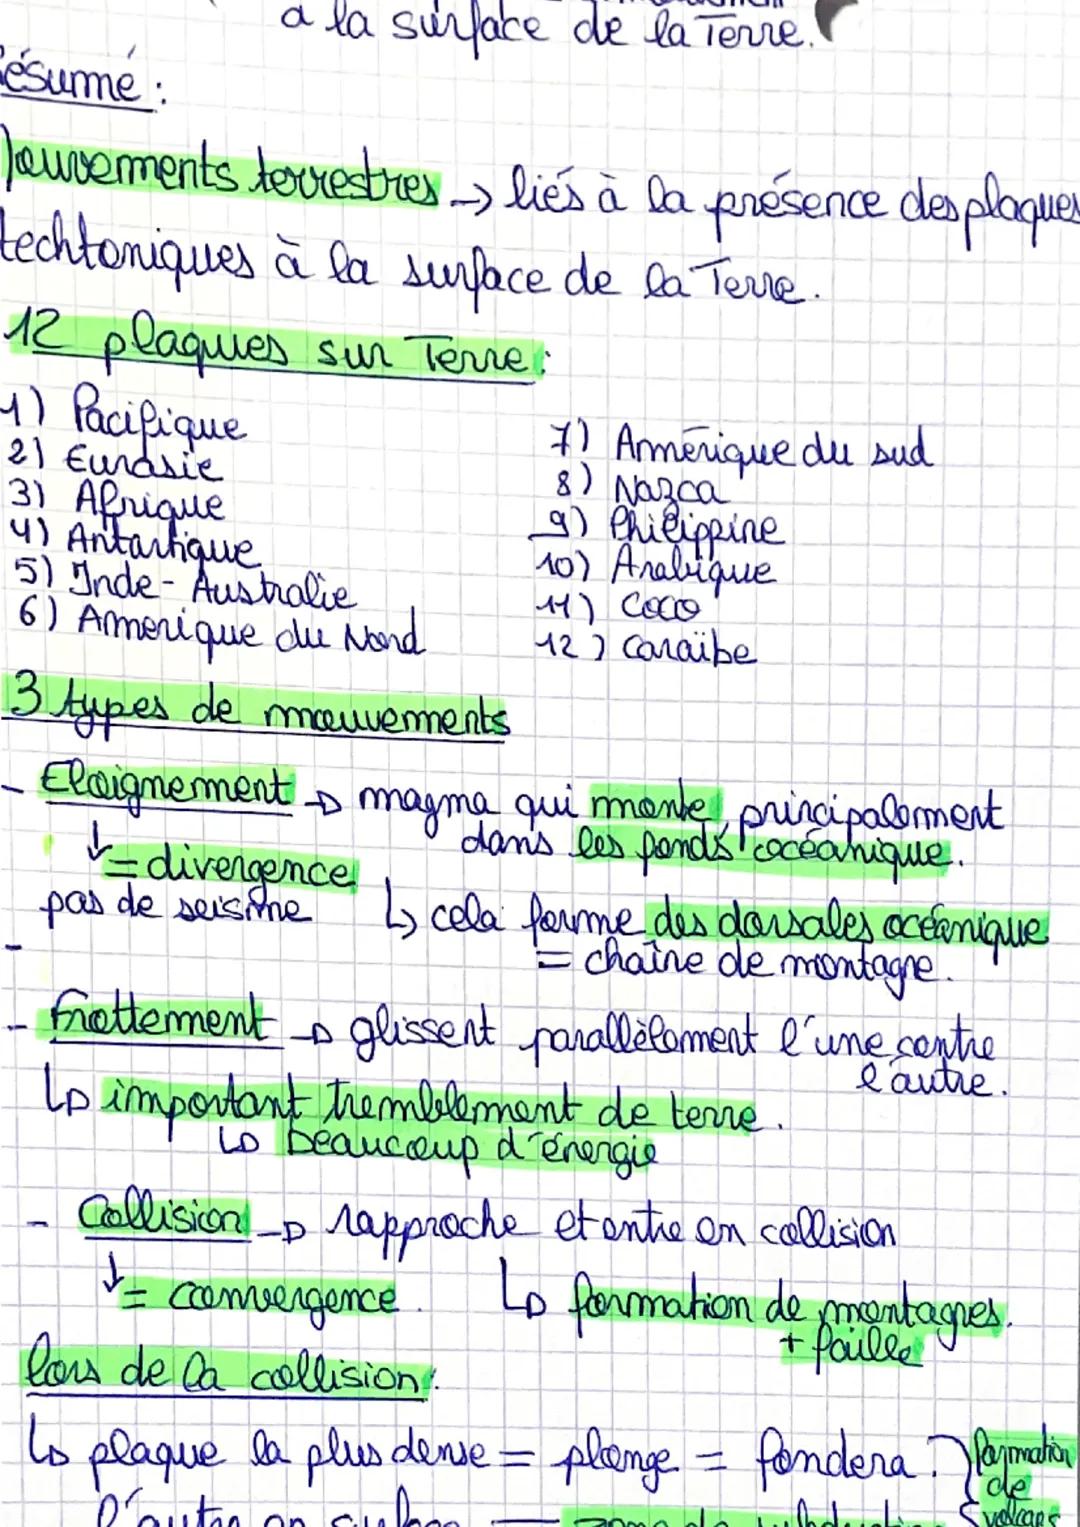 à la surface de la Terre.
ésumé :
ouvements terrestres → liés à la présence des plaques
techtoniques à la surface de la Terre.
12 plaques sur Terre :
1) Pacifique
2) Eurasie
3) Afrique
4) Antartique
5) Inde-Australie
6) Amerique du Nord
7) Amérique du sud
8) Nazca
9) Philippine
10) Arabique
11) Coco
12) Caraïbe
3 types de mouvements
- Eloignement → magma qui monte, principalement
dans les fonds océanique.
↓ = divergence
pas de seisme ↳ cela forme des dorsales océanique
= chaîne de montagne.
-
- Frottement → glissent parallèlement l'une contre
l'autre.
↳ important tremblement de terre.
↳ beaucoup d'énergie
- Collision → rapproche et entre en collision
↓ = convergence. ↳ formation de montagnes.
+ faille
lors de la collision :
↳ plaque la plus dense = plonge = fondera. } formation
de
volcans
l'autre en surface — zone de subduction